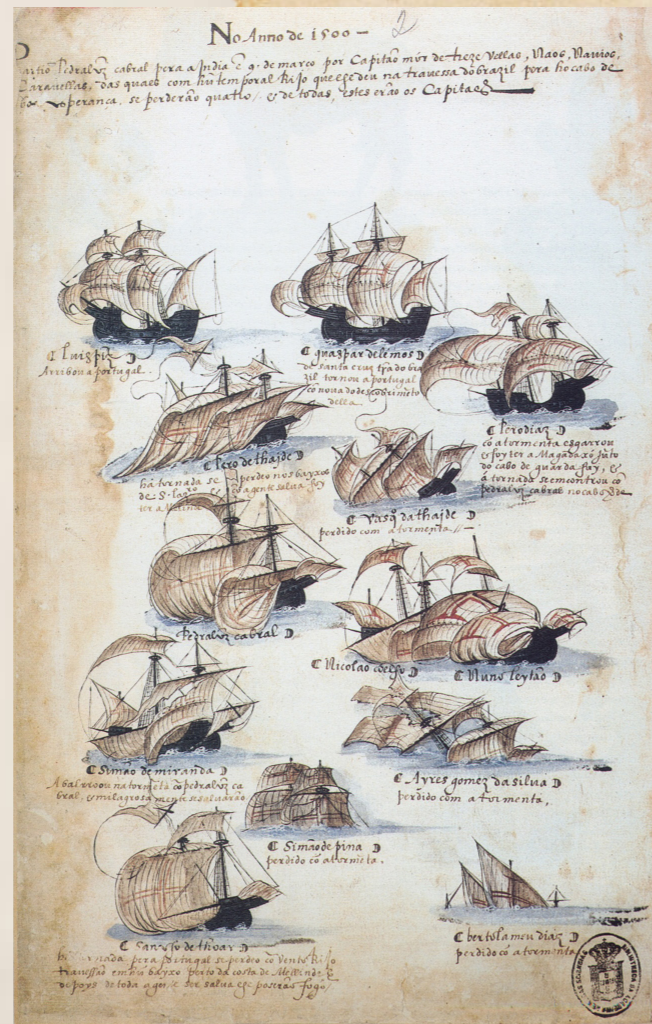 No Anno de 1500 —
2
Partio Pedralvrz cabral pera a India ẽ 9. de março por Capitão mór de treze vellas, Naos, Navios,
Caravellas, das quaes com hũ temporal Rijo que ese deu na travessa do brazil pera ho cabo de
boa esperanca, se perderão quatro, & de todas, estes erão os Capitaẽs
Luis piz
Arribou a portugal.
guaspar de lemos
de santa cruz tr͂a do bra
zil tornou a portugal
cõ nova do descobrimẽto
della
Pero diaz
cõ a tormenta esgarrou
& foy ter a Magadaxó jũto
do cabo de guardafuy, &
á tornada se emcontrou cõ
pedralvrz cabral no cabo
Pero de thajde
há tornada se perdeo nos baixos
de S. lazº & a gente salva foy
ter a
Vasq̃ da thajde
perdido com a tormenta.
Pedralvrz cabral
Nicolao coelho
Nuno leytão
Simão de miranda
Abalrroou na tormẽta cõ pedralvrz ca
bral, & milagrosamente se salvarão
Ayres gomez da silva
perdido com a tormenta,
Simão de pina
perdido cõ a tormẽta.
de thoar
tornada pera portugal se perdeo cõ vento Rijo
travessão em hũ bayxo perto da costa de Melinde &
depoys de toda a gente ser salva ese poserão fogo,
bertolameu diaz
perdido cõ a tormenta